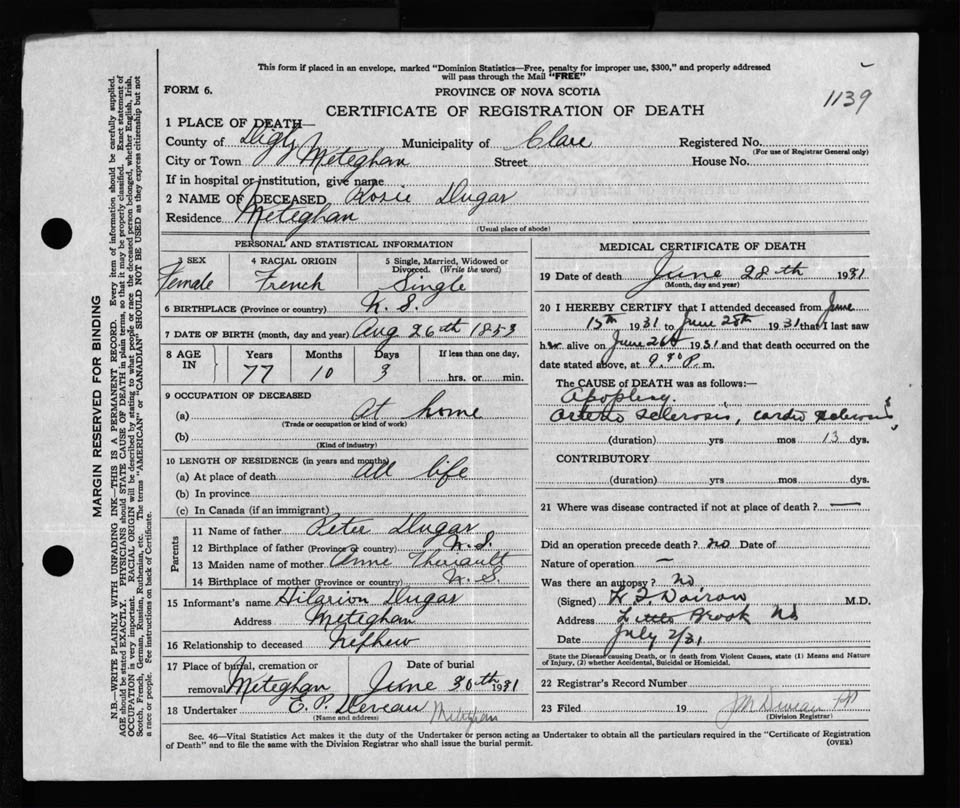 This form if placed in an envelope, marked "Dominion Statistics—Free, penalty for improper use, $300," and properly addressed
will pass through the Mail "FREE"
FORM 6.
PROVINCE OF NOVA SCOTIA
1139
CERTIFICATE OF REGISTRATION OF DEATH
1 PLACE OF DEATH—
County of Digby Municipality of Clare Registered No.
(For use of Registrar General only)
City or Town Meteghan Street House No.
If in hospital or institution, give name
2 NAME OF DECEASED Rosie Dugas
Residence Meteghan
(Usual place of abode)
PERSONAL AND STATISTICAL INFORMATION
3 SEX 4 RACIAL ORIGIN 5 Single, Married, Widowed or
Divorced. (Write the word)
Female French Single
6 BIRTHPLACE (Province or country) N. S.
7 DATE OF BIRTH (month, day and year) Aug 26th 1853
8 AGE IN Years Months Days If less than one day,
77 10 3 hrs. or min.
9 OCCUPATION OF DECEASED
(a) At home
(Trade or occupation or kind of work)
(b)
(Kind of industry)
10 LENGTH OF RESIDENCE (in years and months)
(a) At place of death All life
(b) In province
(c) In Canada (if an immigrant)
Parents
11 Name of father Peter Dugas
12 Birthplace of father (Province or country) N. S.
13 Maiden name of mother Anne Theriault
14 Birthplace of mother (Province or country) N. S.
15 Informant's name Hilarion Dugas
Address Meteghan
16 Relationship to deceased Nephew
17 Place of burial, cremation or Date of burial
removal Meteghan June 30th 1931
18 Undertaker E. P. Deveau Meteghan
(Name and address)
MEDICAL CERTIFICATE OF DEATH
19 Date of death June 28th 1931
(Month, day and year)
20 I HEREBY CERTIFY that I attended deceased from June
15th 1931 to June 28th 1931 that I last saw
her alive on June 26th 1931 and that death occurred on the
date stated above, at 9.30 P. m.
The CAUSE OF DEATH was as follows:—
Apoplexy.
Arterio sclerosis, cardio sclerosis
(duration) yrs mos 13 dys.
CONTRIBUTORY
(duration) yrs. mos. dys.
21 Where was disease contracted if not at place of death? —
Did an operation precede death? no Date of
Nature of operation —
Was there an autopsy? No.
(Signed) M.D.
Address Little Brook NS
Date July 2/31
State the Disease causing Death, or in death from Violent Causes, state (1) Means and Nature
of Injury, (2) whether Accidental, Suicidal or Homicidal.
22 Registrar's Record Number
23 Filed 19 Deveau
(Division Registrar)
Sec. 46—Vital Statistics Act makes it the duty of the Undertaker or person acting as Undertaker to obtain all the particulars required in the "Certificate of Registration
of Death" and to file the same with the Division Registrar who shall issue the burial permit. (OVER)
MARGIN RESERVED FOR BINDING
N.B.—WRITE PLAINLY WITH UNFADING INK—THIS IS A PERMANENT RECORD. Every item of information should be carefully supplied.
AGE should be stated EXACTLY. PHYSICIANS should STATE CAUSE OF DEATH in plain terms, so that it may be properly classified. Exact statement of
OCCUPATION is very important. RACIAL ORIGIN will be described by stating to what people or race the deceased person belonged, whether English, Irish,
Scotch, French, German, Russian, Ruthenian, etc. The terms "AMERICAN" or "CANADIAN" SHOULD NOT BE USED as they express citizenship but not
a race or people. See instructions on back of Certificate.